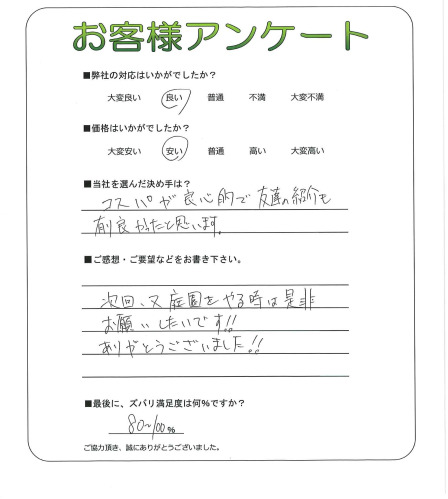 お客様アンケート
■弊社の対応はいかがでしたか？
大変良い 良い 普通 不満 大変不満
■価格はいかがでしたか？
大変安い 安い 普通 高い 大変高い
■当社を選んだ決め手は？
コスパが良心的で友達の紹介も
有良かったと思います。
■ご感想・ご要望などをお書き下さい。
次回、又庭園をやる時は是非
お願いしたいです!!
ありがとうございました!!
■最後に、ズバリ満足度は何%ですか？
80~100%
ご協力頂き、誠にありがとうございました。